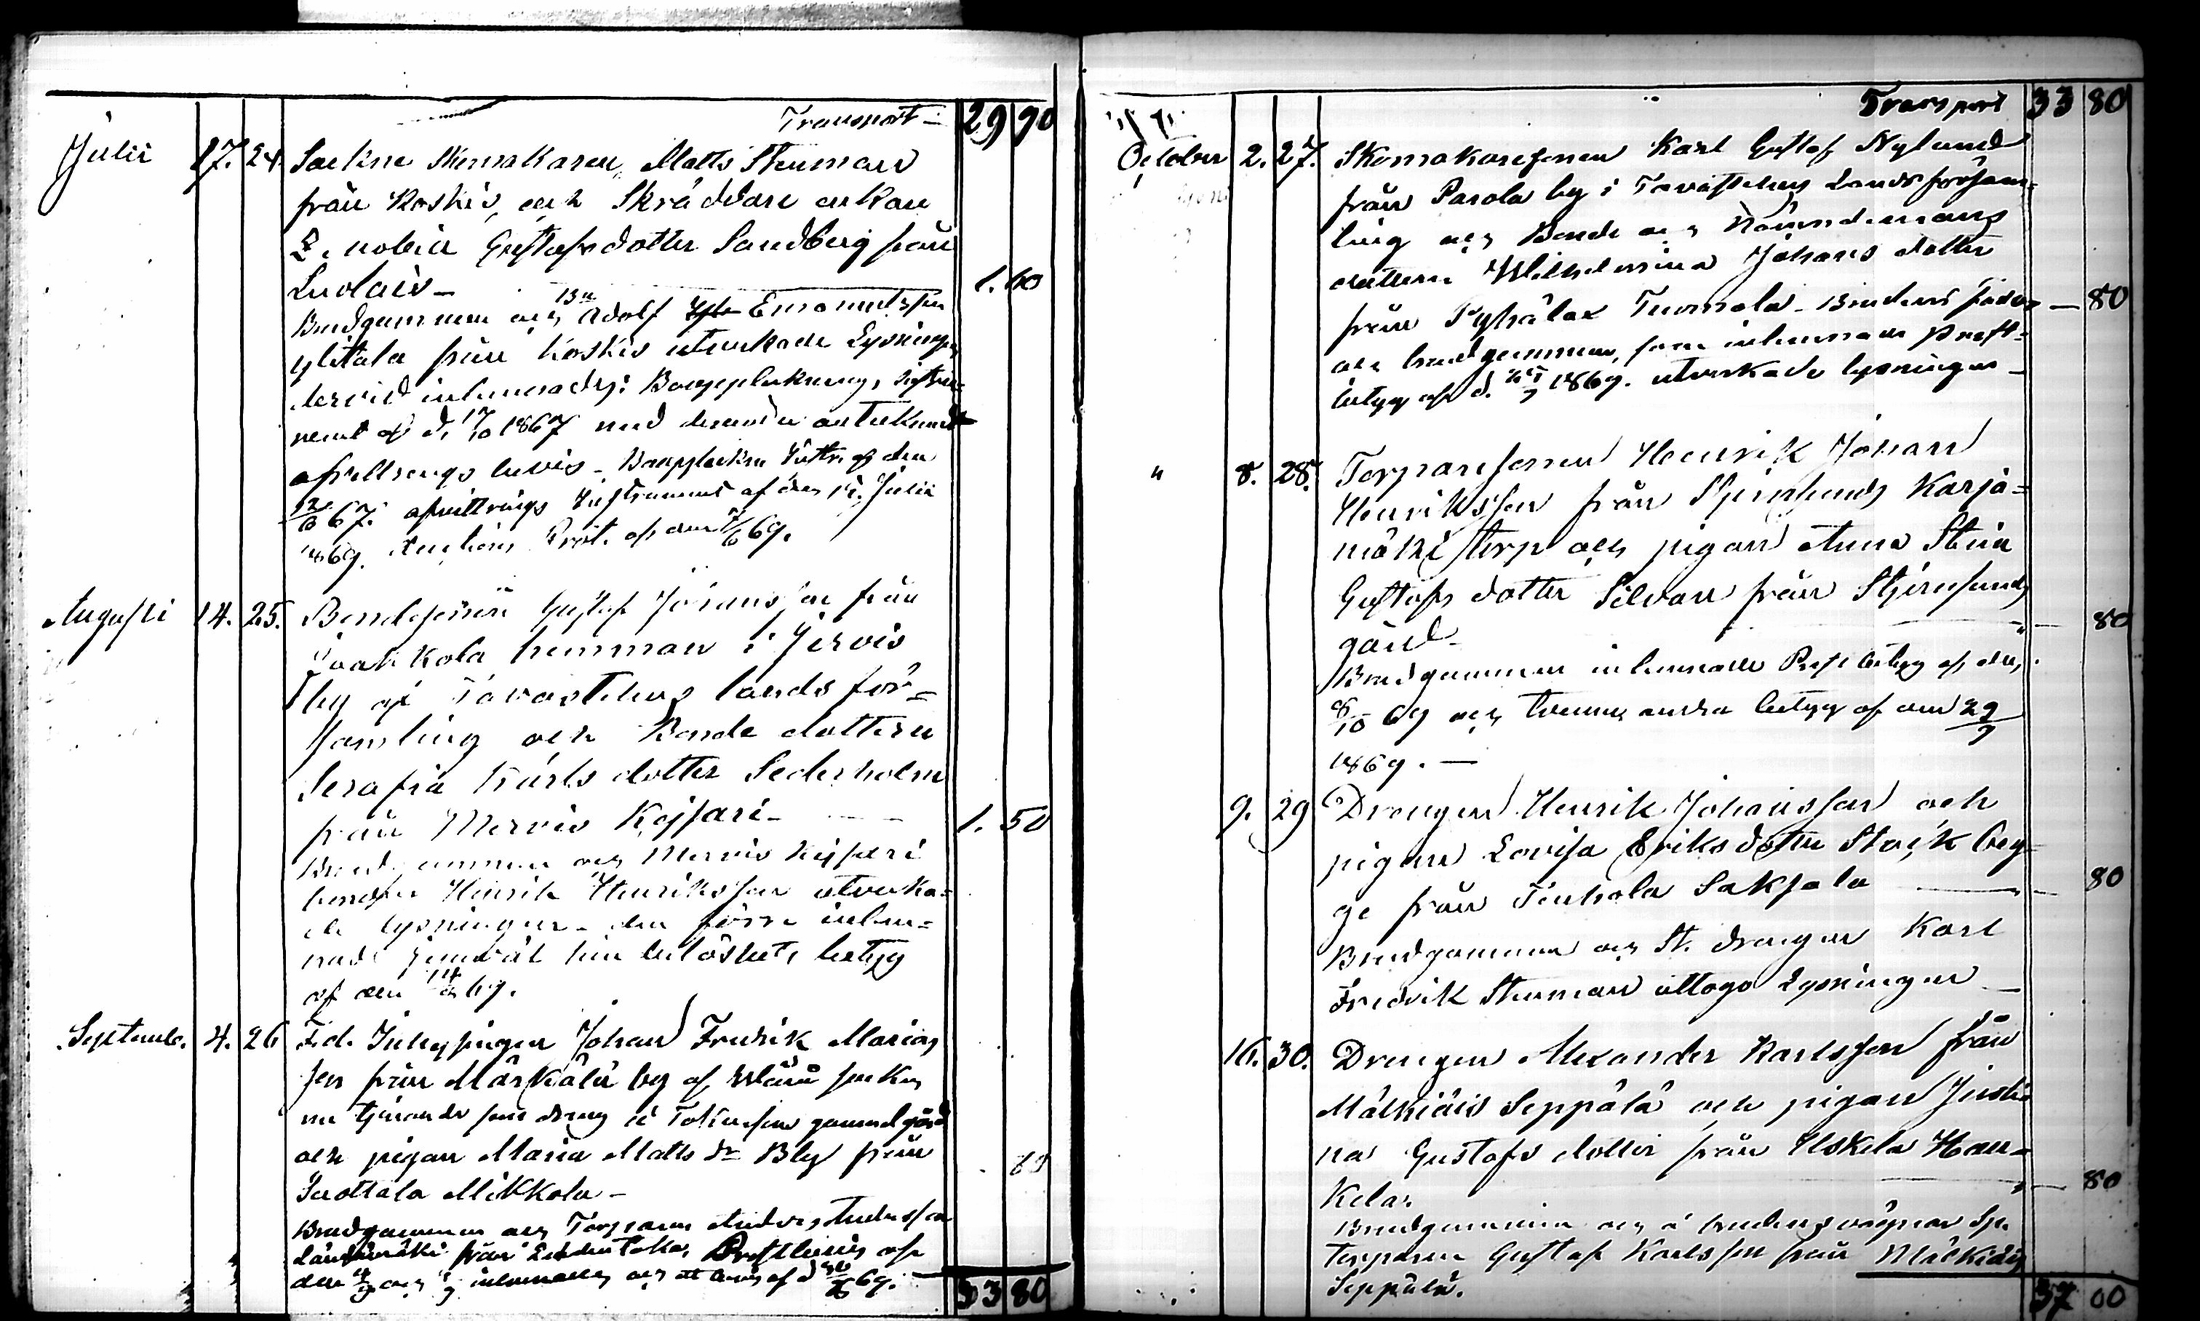 Transport – 29 90
Julii 17. 24. Sockne Skomakaren, Matts Stenman
från Koskis, och Skräddare enkan
Gustafsdotter Sandberg från
Suolais – 1. 60
Brudgummen och Bn Adolf Emanuelsson
Ylitalo från Koskis utverkade Lysningen
dervid inlemnades: Bouppteckningsinstru-
ment af d. 17/10 1867 med derunder antecknadt
afvittrings bevis – Bouppteckn Instr. af den
12/6 67. afvittrings Instrument af den 15. Julii
1869. Auctions Prot. af den 69.
Augusti 14. 25. Bondesonen Gustaf Johansson från
Jaakkola hemman i Jervis
by af Tavastehus lands för-
samling och Bonde dottern
Serafia Karls dotter Sederholm
från Mervis Kejsari – 1. 50
Brudgummen och Mervis Kejsari
bonden Henrik Henriksson utverka-
de lysningen – den förre inlem-
nade hinderlöshets betyg
af den 14/8 69.
Septemb. 4. 26 F.d. Inhysingen Johan Fredrik Marias
son från by af socken
nu tjenande som dräng å gammelgård
och pigan Maria Matts dr Bly från
Juottala Mikkola – 80
Brudgummen och Torparen Anders Andersson
från Prestbevis af
den och inlemnades och ett bevis af d 69.
33 80
Transport 33 80
October 2. 27. Skomakaresonen Karl Gustaf Nylund
från Parola by i Tavastehus Landsförsam-
ling och Bonde och Nämndemans
dottern Wilhelmina Johans dotter
från Pyhälax Tuomola – Brudens fader — 80
och brudgummen, som inlemnade prest-
betyg af d. 1869. utverkade lysningen –
" 8. 28. Torparesonen Henrik Johan
Henriksson från Stjernsunds Karja-
mäki torp och pigan Anna Stina
Gustafs dotter Silvan från Stjernsunds
gård – 80
Brudgummen inlemnade Prestbetyg af den
8/10 69 och tvenne andra betyg af den 29/9
1869. —
9. 29 Drengen Henrik Johansson och
pigan Lovisa Eriksdotter Stark beg-
ge från Tenhola Saksala — 80
Brudgummen och St. drengen Karl
Fredrik Stenman uttogo Lysningen –
16. 30. Drengen Alexander Karlsson från
Mälkiäis Seppälä och pigan Justi
na Gustafs dotter från Uskela Hau-
kela. — 80
Brudgummen och å brudens vägnar Sp.
torparen Gustaf Karlsson från Mälkiäis
Seppälä.
37 00